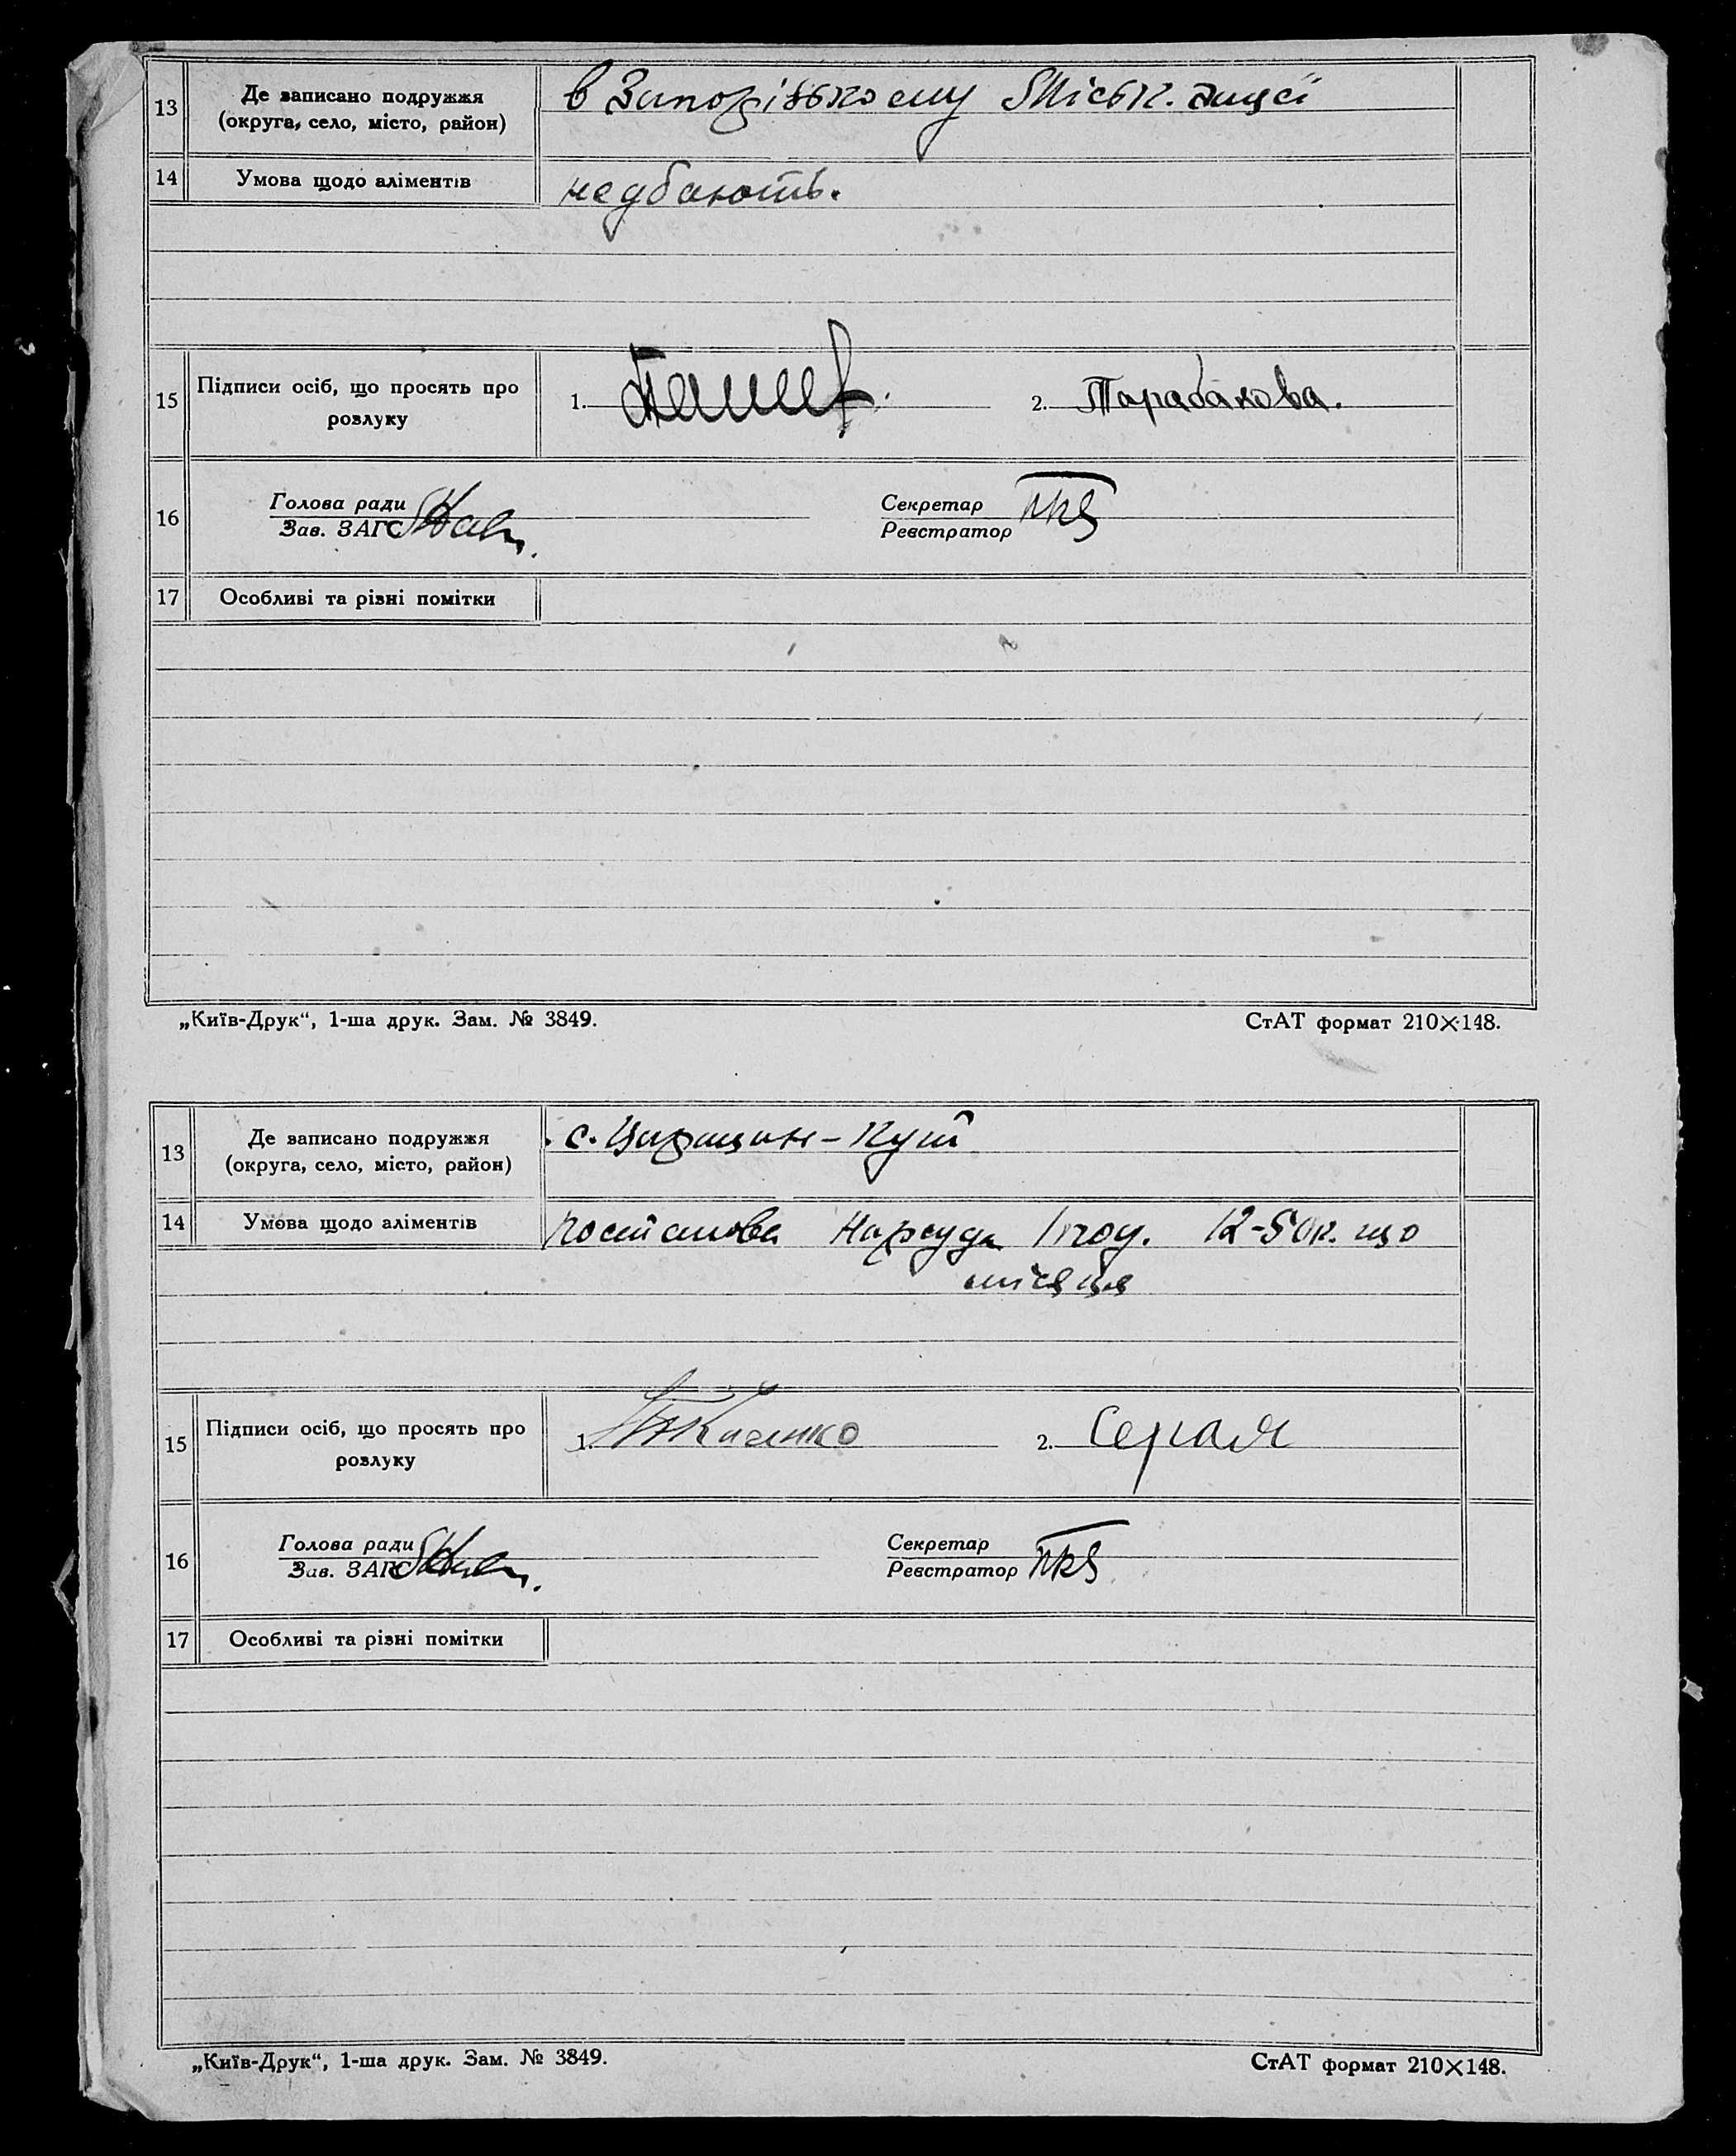 13
Де записано подружжя
(округа, село, місто, район)
в Запорізькому Міськ. загсі
14
Умова щодо аліментів
не дбають.
15
Підписи осіб, що просять про
розлуку
1.
2. Тарабакова.
16
Голова ради
Зав. ЗАГС
Секретар
Реєстратор
17
Особливі та різні помітки
„Київ-Друк“, 1-ша друк. Зам. № 3849.
СтАТ формат 210×148.
13
Де записано подружжя
(округа, село, місто, район)
с. Царицин-Кут
14
Умова щодо аліментів
постанова Нарсуда 12-50к. що
місяця
15
Підписи осіб, що просять про
розлуку
1. Ткаченко
2. Серая
16
Голова ради
Зав. ЗАГС
Секретар
Реєстратор
17
Особливі та різні помітки
„Київ-Друк“, 1-ша друк. Зам. № 3849.
СтАТ формат 210×148.